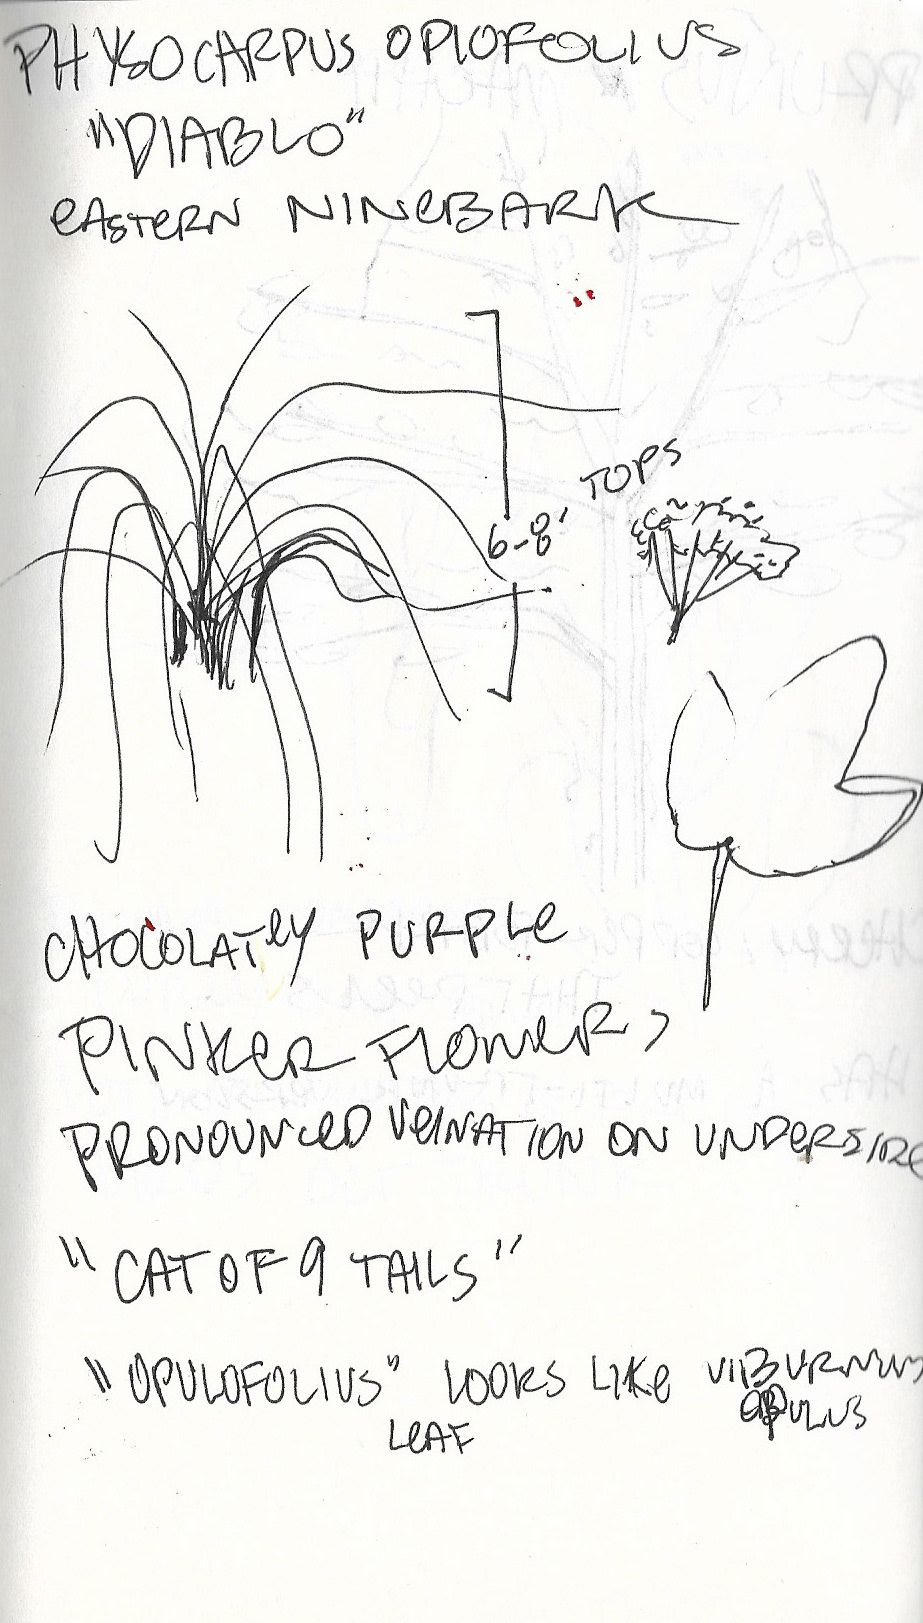 PHYSOCARPUS OPIOFOLIUS
"DIABLO"
EASTERN NINEBARK
6-8'
TOPS
CHOCOLATEY PURPLE
PINKER FLOWER,
PRONOUNCED VEINATION ON UNDERSIDE
"CAT OF 9 TAILS"
"OPULOFOLIUS" LOOKS LIKE VIBURNUM
OPULUS
LEAF